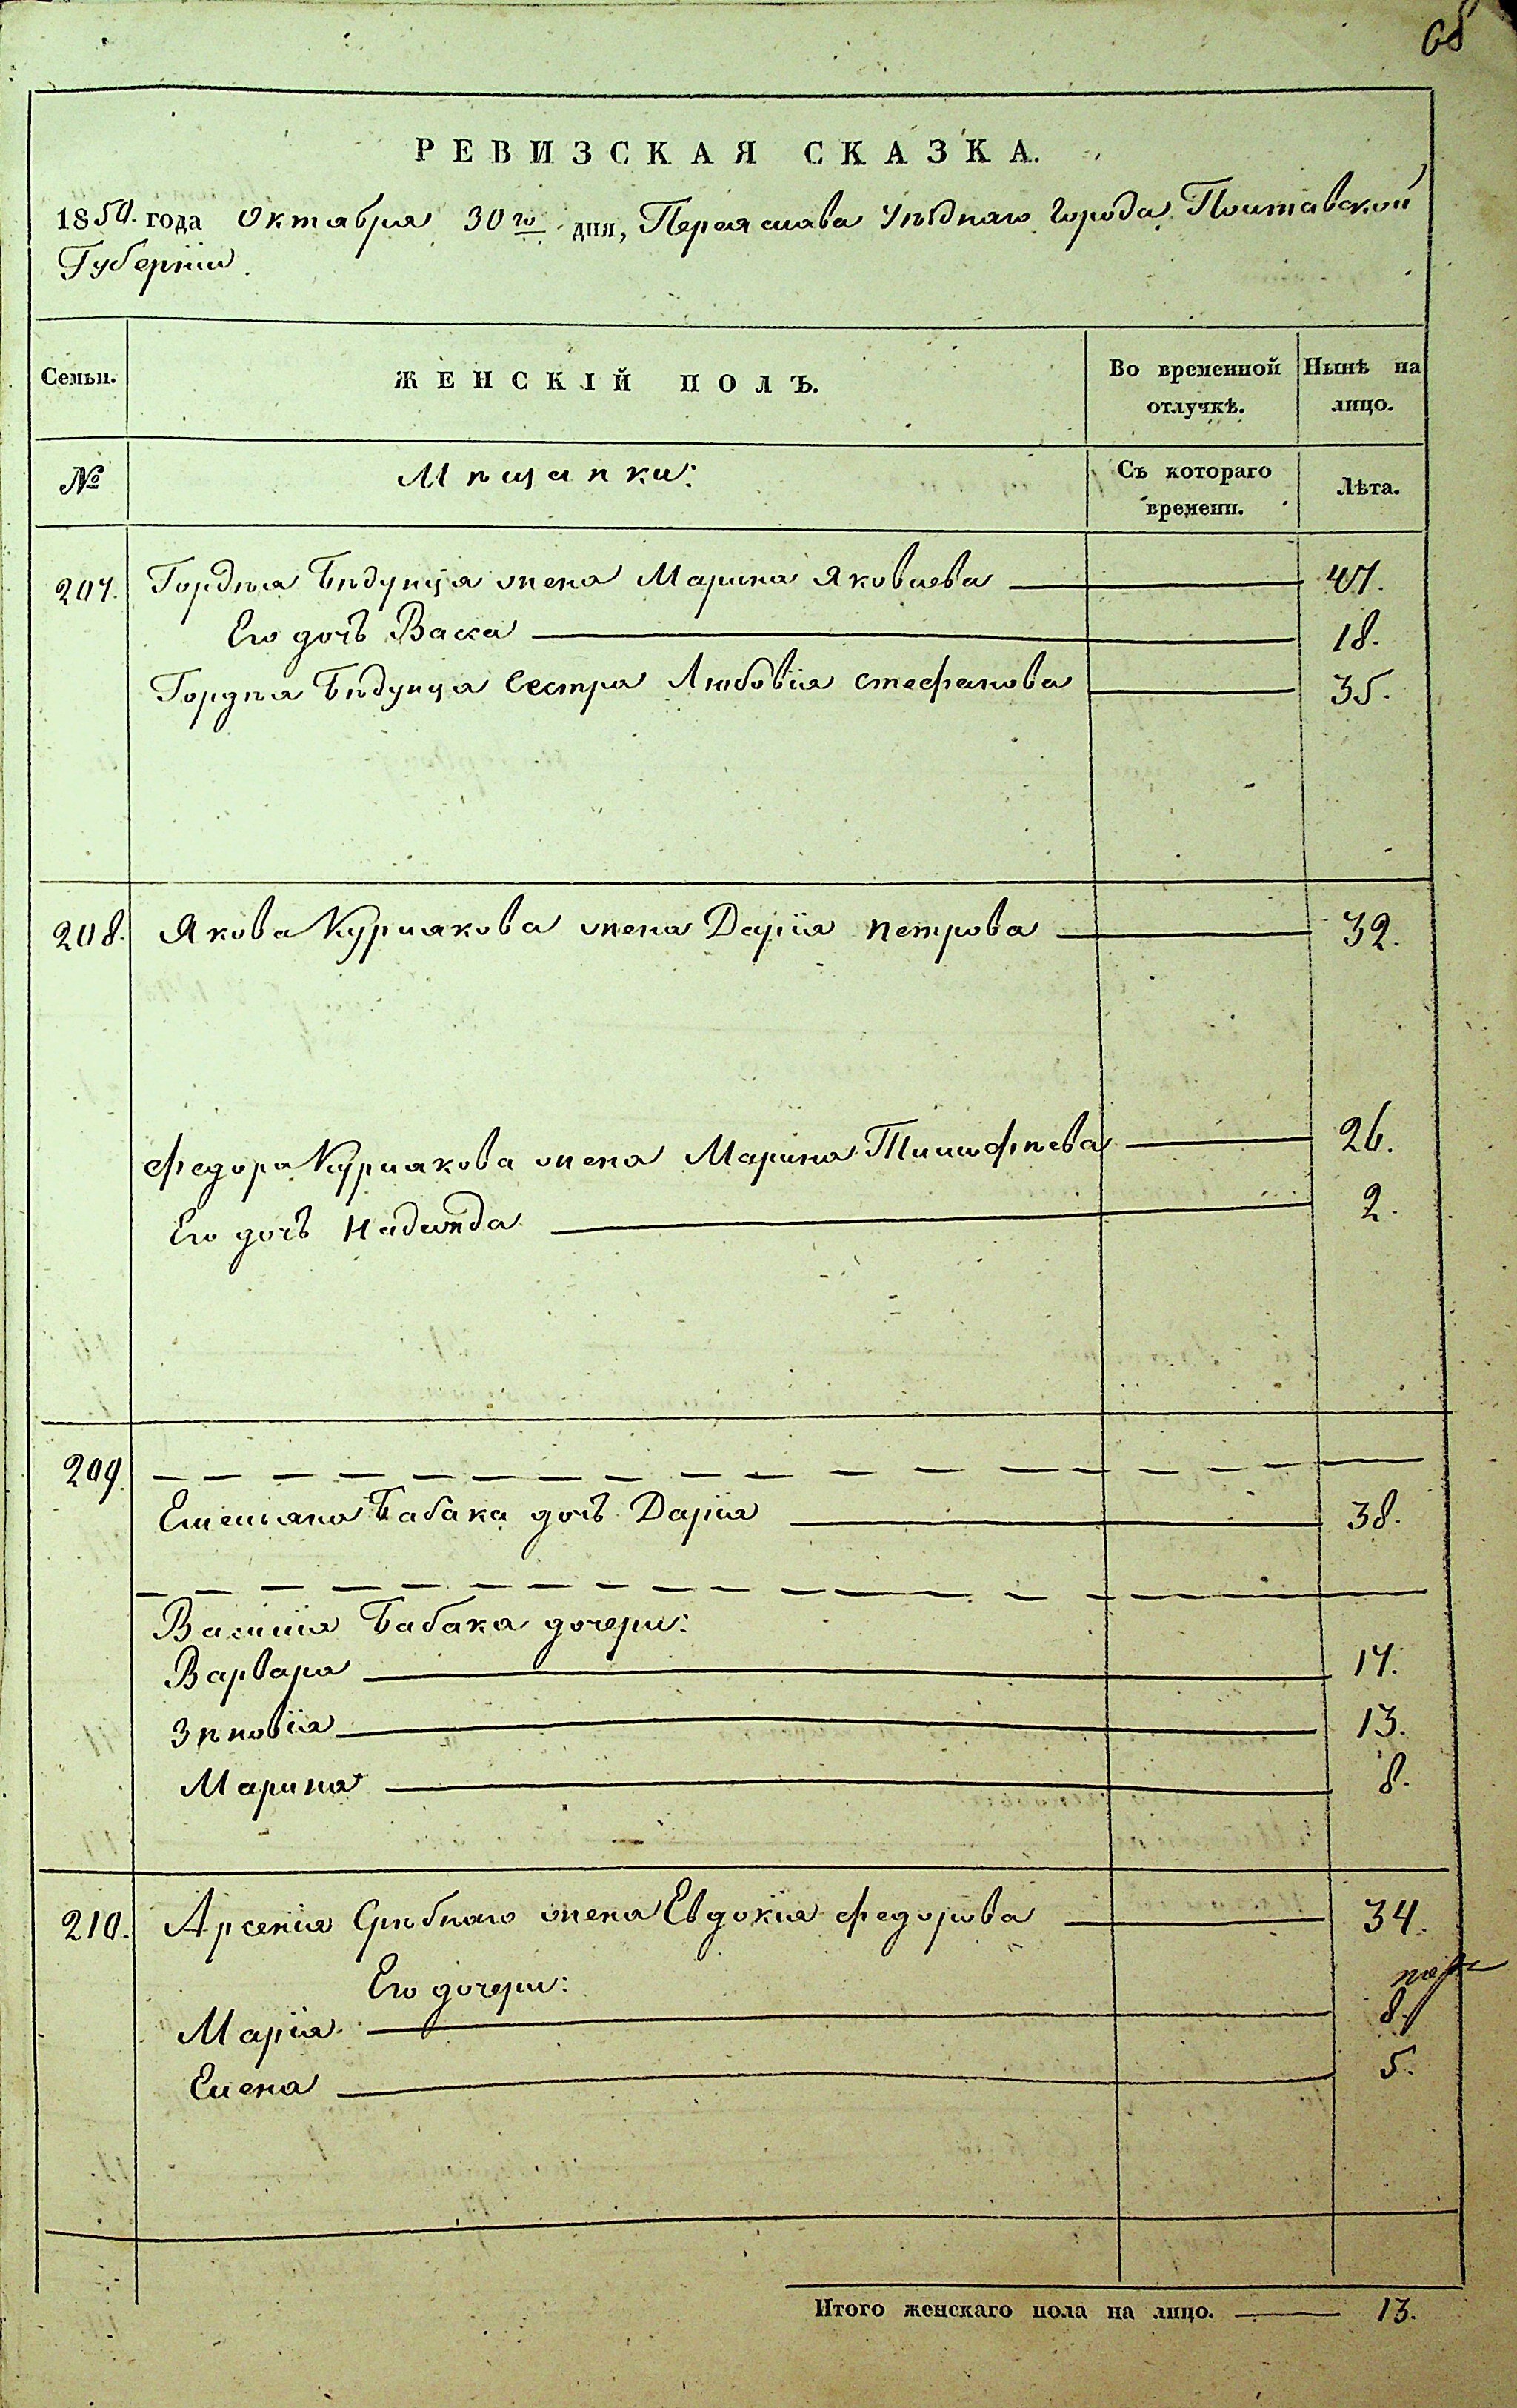 68
РЕВИЗСКАЯ СКАЗКА.
1850. года Октября 30го дня, Переяслава Уѣзднаго Города, Полтавской
Губерніи.
Семьи.
ЖЕНСКІЙ ПОЛЪ.
Во временной отлучкѣ.
Нынѣ на лицо.
№
Мѣщанки:
Съ котораго времени.
Лѣта.
207. Гордѣя Бѣдунца жена Марина Яковлева 47.
Его дочь Васса 18.
Гордѣя Бѣдунца сестра Любовія Стефанова 35.
208. Якова Курилкова жена Дарія Петрова 32.
Федора Курилкова жена Марина Тимофѣева 26.
Его дочь Надежда 2.
209.
Емельяна Бабака дочь Дарія 38.
Василія Бабака дочери:
Варвара 17.
Зѣновія 13.
Марина 8.
210. Арсенія Срѣбнаго жена Евдокія Федорова 34.
Его дочери:
Марія 8.
Елена 5.
Итого женскаго пола на лицо. 13.